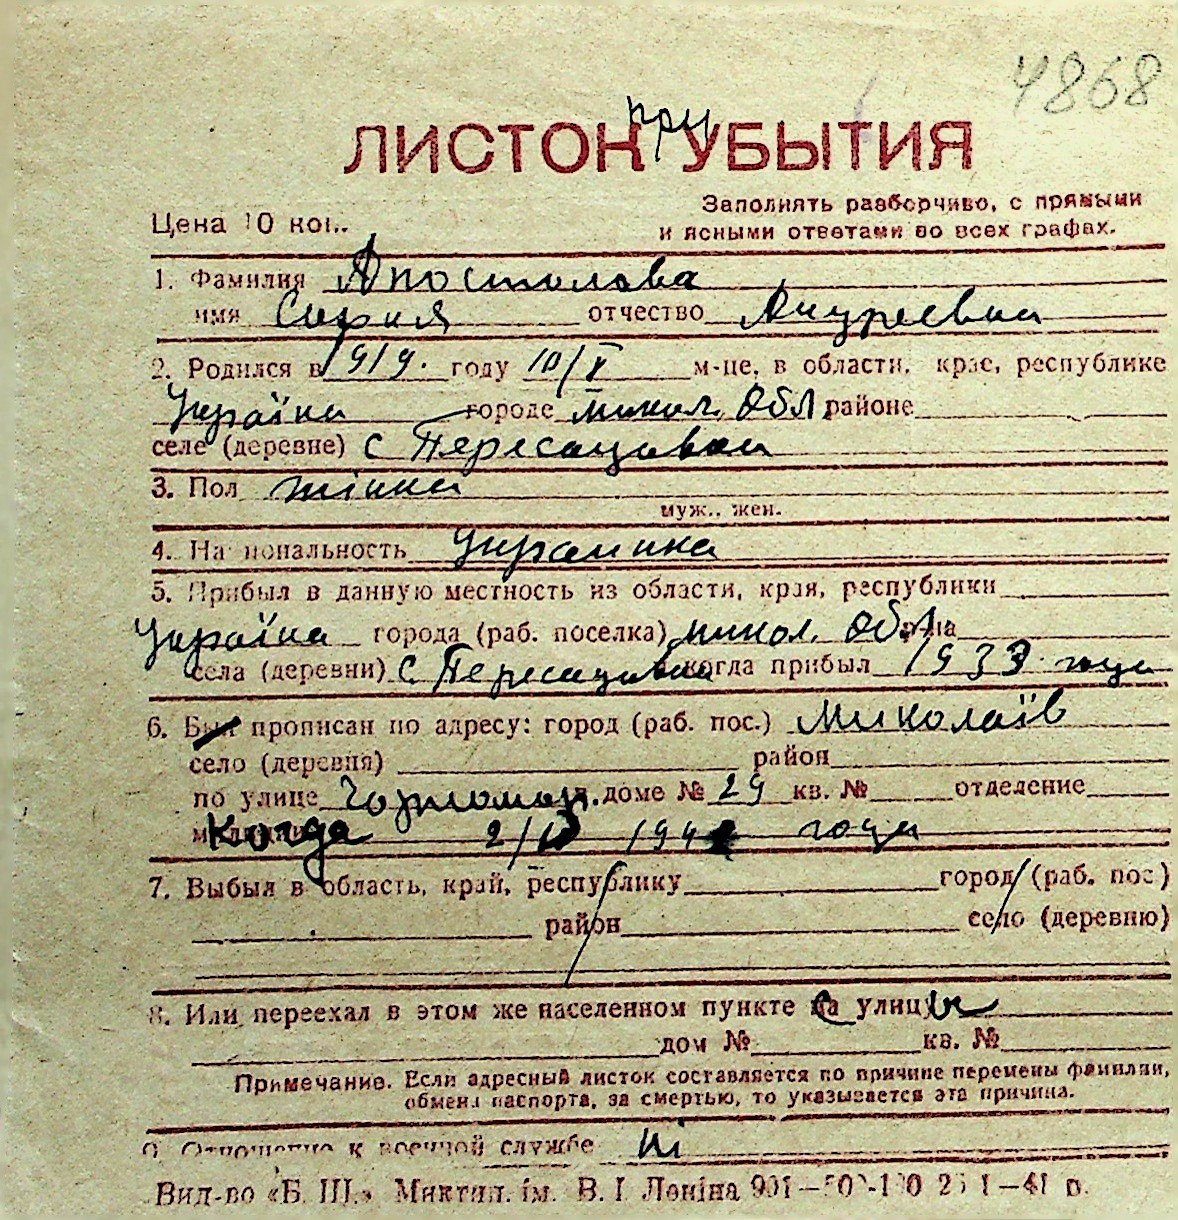 4868
ЛИСТОК при УБЫТИЯ
Цена 10 коп.
Заполнять разборчиво, с прямыми
и ясными ответами во всех графах.
1. Фамилия Апостолова
имя София отчество Андреевна
2. Родился в 1919. году 10/X м-це, в области, крае, республике
Україна городе микол. Обл районе
село (деревне) с Пересадовка
3. Пол жінка
муж., жен.
4. Национальность Украинка
5. Прибыл в данную местность из области, края, республики
Україна города (раб. поселка) микол. Обл
села (деревни) с Пересадовка когда прибыл 1933 года
6. Был прописан по адресу: город (раб. пос.) Миколаїв
село (деревня) район
по улице доме № 29 кв. № отделение
Когда года
7. Выбыл в область, край, республику город (раб. пос)
район село (деревню)
8. Или переехал в этом же населенном пункте с улицы
дом № кв. №
Примечание. Если адресный листок составляется по причине перемены фамилии,
обмена паспорта, за смертью, то указывается эта причина.
9. Отношение к военной службе ні
Вид-во «Б. Ш.» Миктип. ім. В. І Леніна